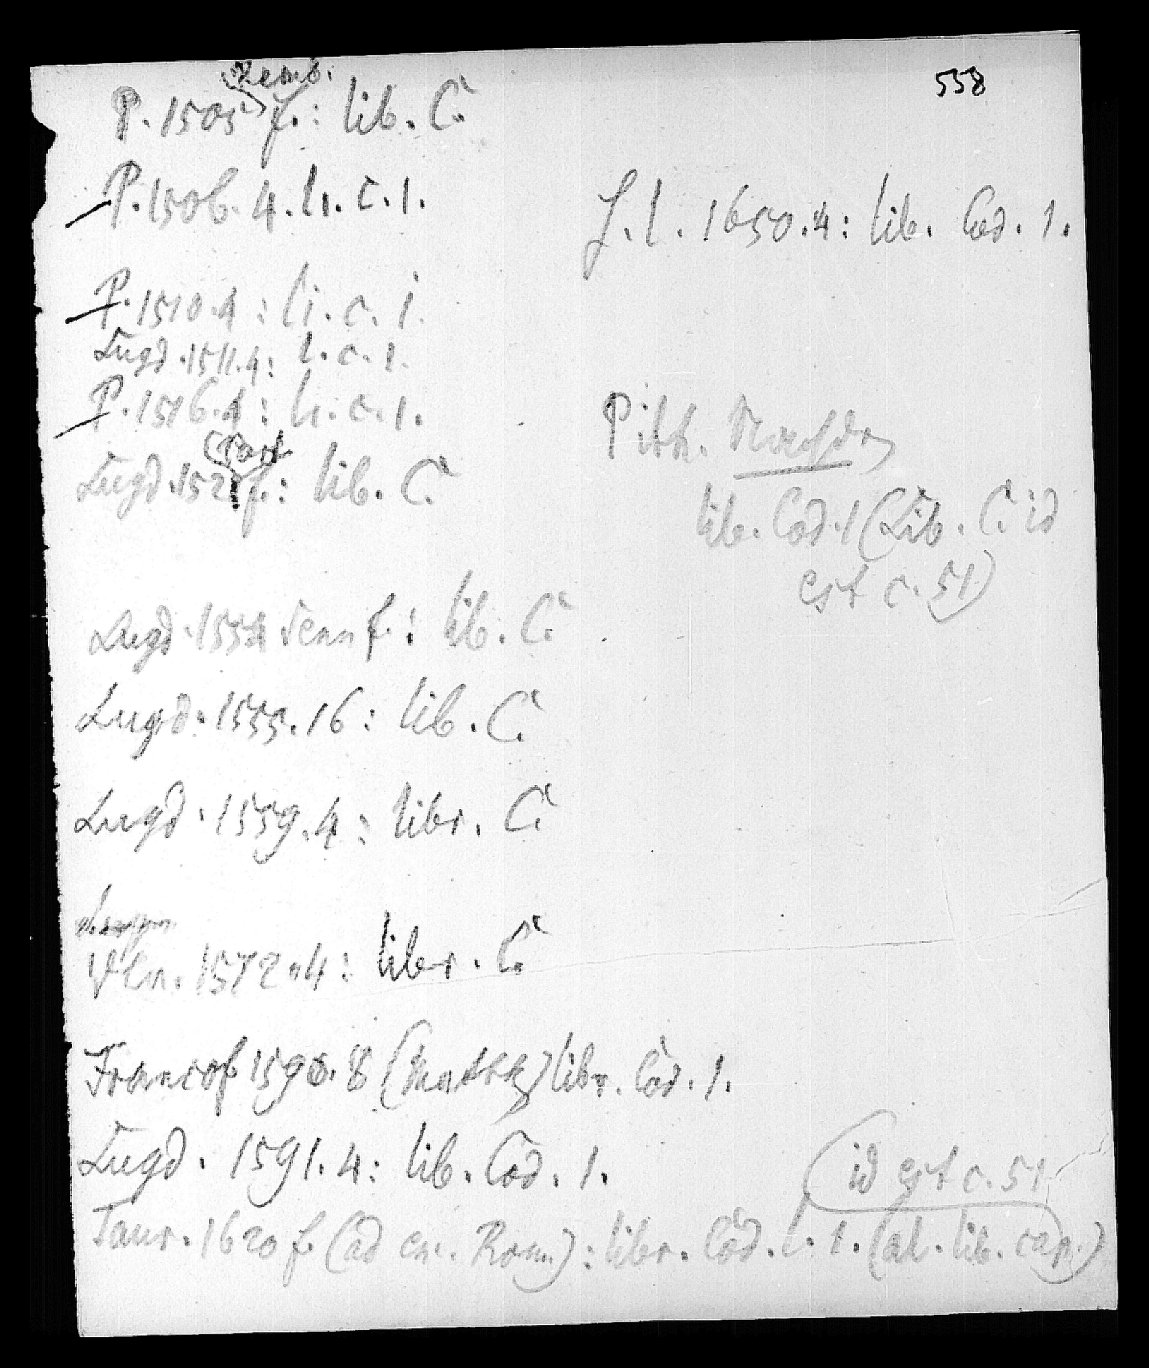 558
(Remb.)
P. 1505 f.: lib. C.
P. 1506. 4. li. c. 1.
P. 1510. 4: li. c. i.
Lugd. 1511. 4: l. c. 1.
P. 1516. 4: li. c. 1.
Lugd. 152 f.: lib. C.
Lugd. 155 Senn f.: lib. C.
Lugd. 1555. 16: lib. C.
Lugd. 1559. 4: libr. C.
Ven. 1572. 4: libr. C.
Francof 1590. 8 () libr. Cod. 1.
Lugd. 1591. 4: lib. Cod. 1.
Taur. 1620 f. (ad ex. Rom): libr. Cod. l. 1. (al. lib. cap.)
(id est c. 51
s. l. 1650. 4: lib. Cod. 1.
Pith.
lib. Cod. 1 (Lib. C. id
est c. 51)